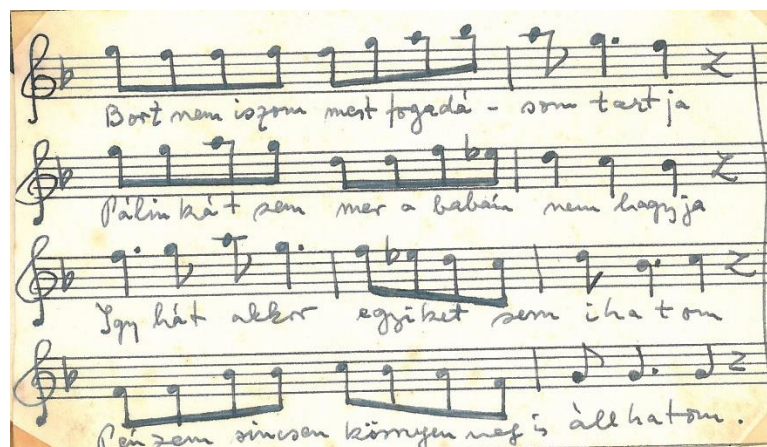 Bort nem iszom mert fogadá - som tartja
Pálinkát sem mer a babám nem hagyja
Igy hát akkor egyiket sem ihatom
Pénzem sincsen könnyen meg is állhatom.